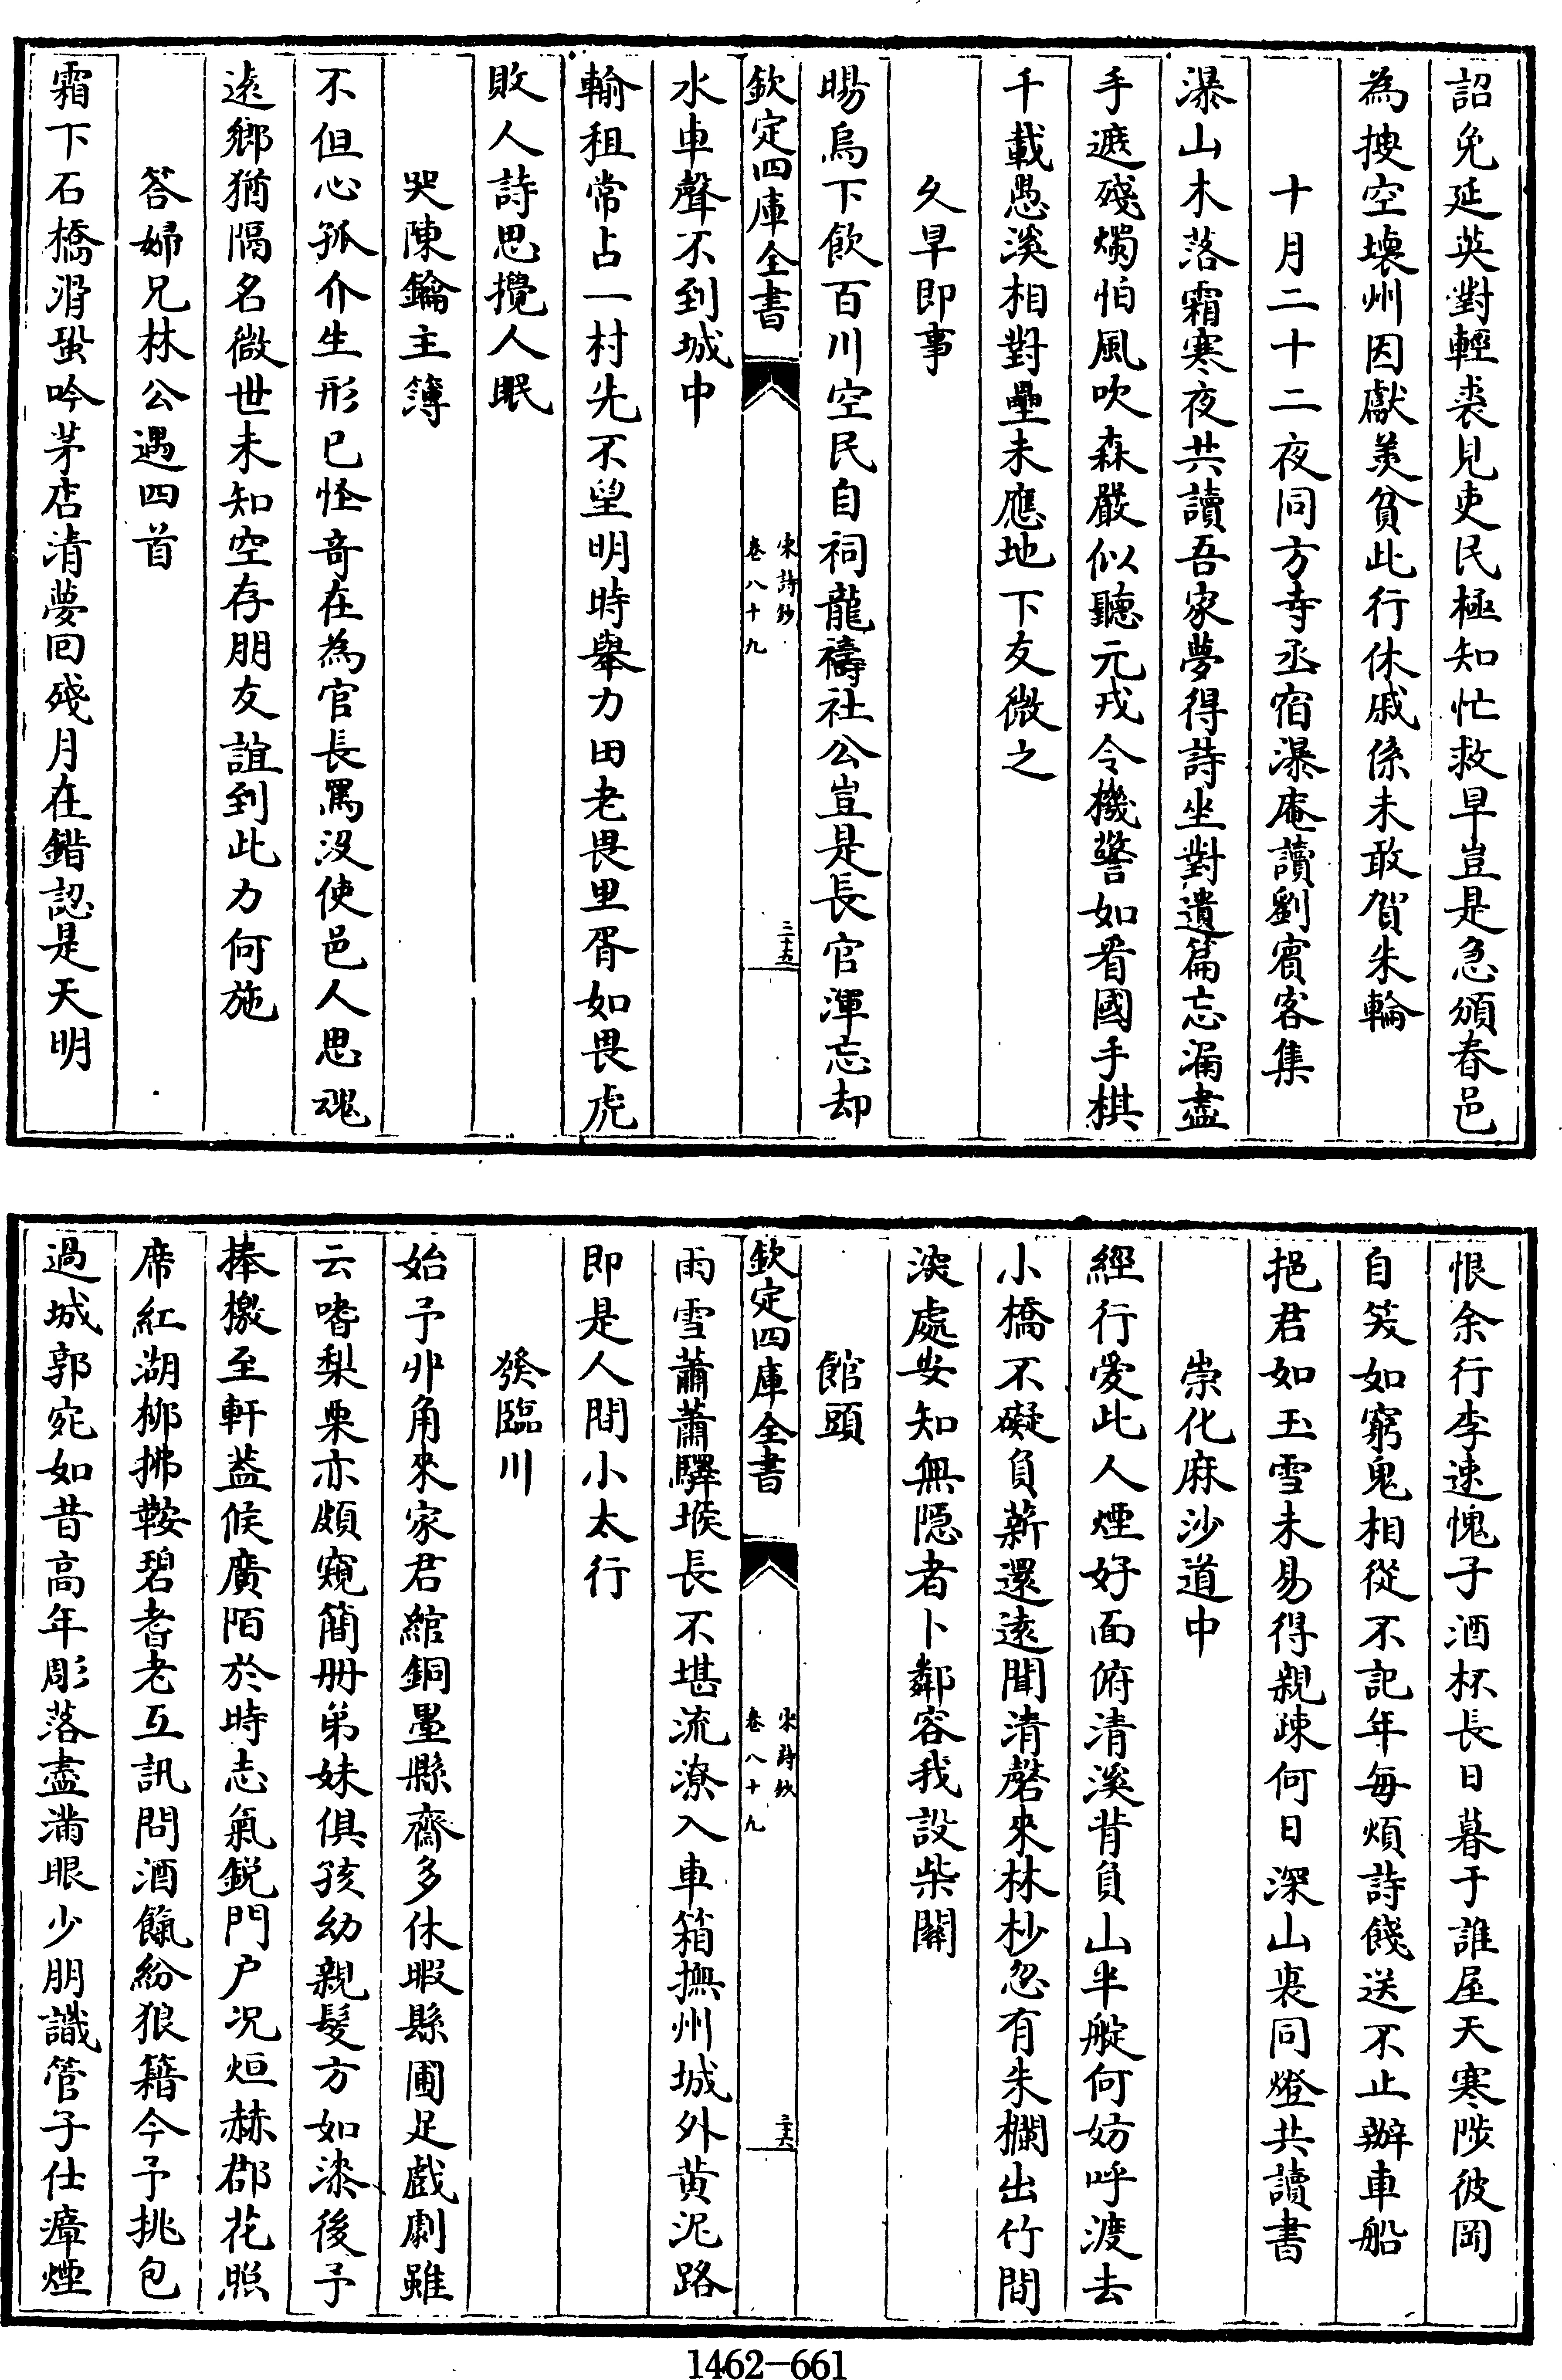 詔免延英對輕裘見吏民極知忙救旱豈是急頒春邑
為摟空壊州因獻羙貧此行休戚係未敢賀朱輪
十月二十二夜同方寺丞宿瀑庵讀劉賔客集
瀑山木落霜寒夜共讀吾家夢得詩坐對遺篇忘漏盡
手遮殘燭怕風吹森嚴似聽元戎令機警如看國手棋
千載愚溪相對壘未應地下友微之
久旱即事
暘烏下飲百川空民自祠龍禱社公豈是長官渾忘却
欽定四庫全書
宋詩鈔
卷八十九
三十五
水車聲不到城中
輸租常占一村先不望明時舉力田老畏里胥如畏虎
敗人詩思攪人眠
哭陳鑰主簿
不但心孤介生形已怪竒在為官長罵沒使邑人思魂
逺鄉猶隔名微世未知空存朋友誼到此力何施
答婦兄林公遇四首
霜下石橋滑蛩吟茅店清夢回殘月在錯認是天明
恨余行李速愧子酒杯長日暮于誰屋天寒陟彼岡
自笑如窮鬼相從不記年每煩詩餞送不止辦車船
挹君如玉雪未易得親疎何日深山裏同燈共讀書
崇化麻沙道中
經行愛此人煙好面俯清溪背負山半艇何妨呼渡去
小橋不礙負薪還逺聞清磬來林杪忽有朱欄出竹間
深處安知無隠者卜鄰容我設柴關
館頭
欽定四庫全書
宋詩鈔
卷八十九
三十六
雨雪蕭蕭驛堠長不堪流潦入車箱撫州城外黄泥路
即是人間小太行
發臨川
始予丱角來家君綰銅墨縣齋多休暇縣圃足戲劇雖
云嗜梨栗亦頗窺簡册弟妹俱孩幼親髮方如漆後予
捧檄至軒葢候廣陌於時志氣鋭門户况烜赫郡花照
席紅湖栁拂鞍碧耆老互訊問酒餼紛狼籍今予挑包
過城郭宛如昔高年彫落盡滿眼少朋識管子仕瘴煙
1462-661